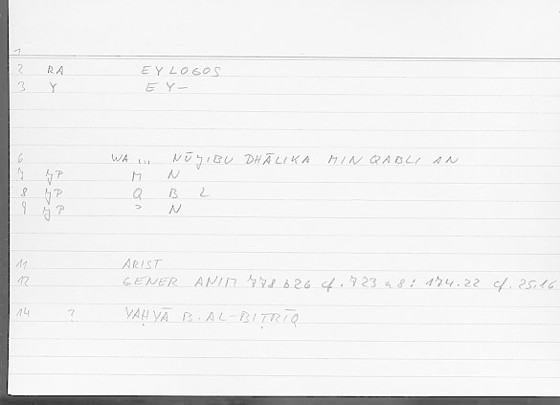 1
2 RA EYLOGOS
3 Y EY-
6 WA ... NŪJIBU DHĀLIKA MIN QABLI AN
7 JP M N
8 JP Q B L
9 JP ʾ N
11 ARIST
12 GENER ANIM 778 b 26 cf. 723 a 8 : 174.22 cf. 25.16
14 ? YAḤYĀ B. AL-BIṬRĪQ